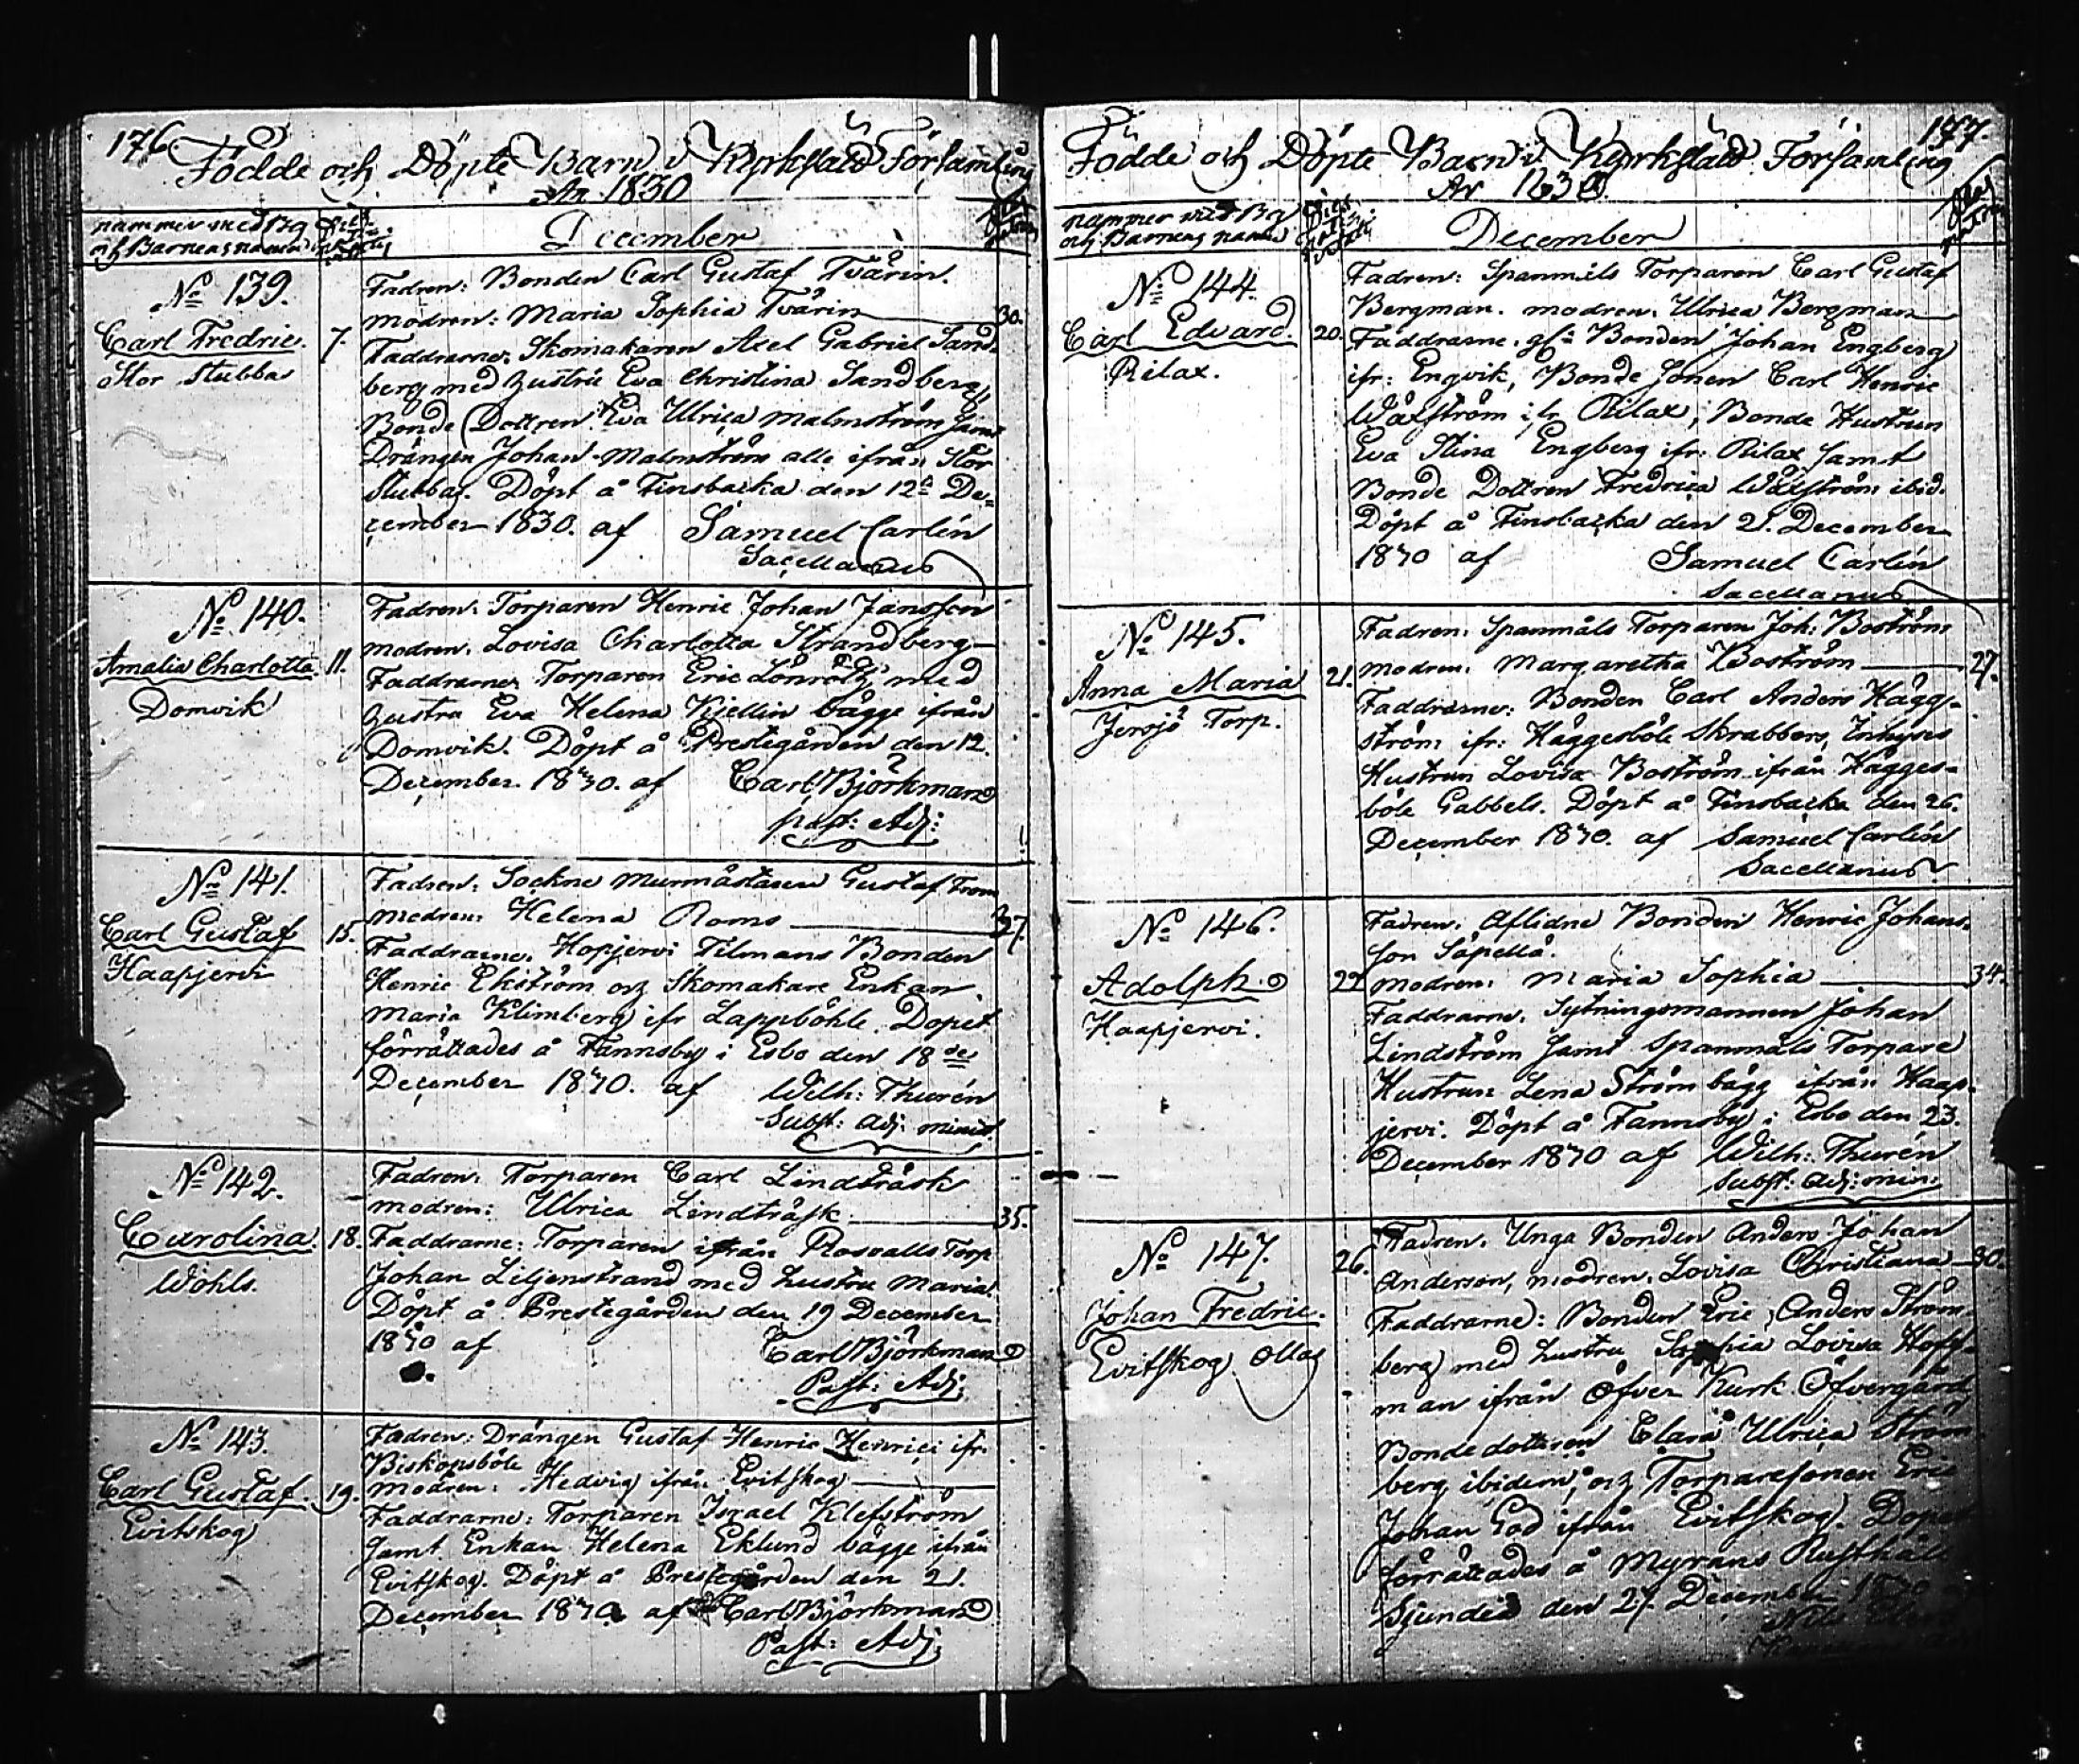 176.
Födde och Döpte Barn i Kyrkslätt Församling
År 1830
nummer med
och Barnens namn
December
No 139.
Carl Fredric.
Stor Stubba
7.
Fadren: Bonden Carl Gustaf Tvärin.
modren: Maria Sophia Tvärin 30.
Faddrarne: Skomakaren Axel Gabriel Sand-
berg med hustru Eva Christina Sandberg,
Bonde Dottren Eva Ulrica Malmström samt
Drängen Johan Malmström alle ifrån Stor
Stubba. Döpt å Finsbacka den 12te De-
cember 1830. af Samuel Carlén
Sacellanus
No 140.
Amalia Charlotta
Domvik
11.
Fadren: Torparen Henric Johan Jansson
modren: Lovisa Charlotta Strandberg
Faddrarne: Torparen Eric Lönroth med
hustru Eva Helena Kjellin bägge ifrån
Domvik. Döpt å Prestegården den 12.
December 1830. af Carl Björkman
past: Adj:
No 141.
Carl Gustaf
Haapjervi
15.
Fadren: Sockne murmästaren Gustaf From
modren: Helena Roms 37.
Faddrarne: Hopjervi Tilmans Bonden
Henric Ekström och Skomakare Enkan
Maria Klimberg ifr Lappböhle. Dopet
förrättades å Fannsby i Esbo den 18de
December 1830. af Wilh: Thurén
Subst: adj: minist.
No 142.
Carolina.
Wohls.
18.
Fadren: Torparen Carl Lindträsk
modren: Ulrica Lindträsk 35.
Faddrarne: Torparen ifrån Rosvalls Torp
Johan Liljenstrand med hustru Maria.
Döpt å Prestegården den 19 December
1830 af Carl Björkman
Past: Adj:
No 143.
Carl Gustaf
Evitskog
19.
Fadren: Drängen Gustaf Henric Henrici ifr:
Biskopsböle
modren: Hedvig ifrån Evitskog
Faddrarne: Torparen Israel Klefström
samt Enkan Helena Eklund bägge ifrån
Evitskog. Döpt å Prestegården den 21.
December 1830 af Carl Björkman
Past: Adj:
177.
Födde och Döpte Barn i Kyrkslätt Församling
År 1830.
nummer med
och Barnens namn
December
No 144.
Carl Edvard.
Rilax.
20.
Fadren: Spanmåls Torparen Carl Gustaf
Bergman. modren: Ulrica Bergman
Faddrarne: Bonden Johan Engberg
ifr: Engvik, Bonde Sonen Carl Henric
Wäxström ifr Rilax, Bonde Hustrun
Eva Stina Engberg ifr: Rilax samt
Bonde Dottren Fredrica Wäxström ibid.
Döpt å Finsbacka den 21. December
1830 af Samuel Carlén
Sacellanus
No 145.
Anna Maria
Jersjö Torp.
21.
Fadren: Spanmåls Torparen Joh: Boström
modren: Margaretha Boström 27.
Faddrarne: Bonden Carl Anders Hägg-
ström ifr: Häggesböle Skrabbers, Inhyses
Hustrun Lovisa Boström ifrån Hägges-
böle Gabbels. Döpt å Finsbacka den 26.
December 1830. af Samuel Carlén
Sacellanus
No 146.
Adolph.
Haapjervi.
22
Fadren: Aflidne Bonden Henric Johans-
son Säpellä.
modren: Maria Sophia 34.
Faddrarne: Sytningsmannen Johan
Lindström samt Spanmåls Torpare
Hustrun Lena Ström bägg ifrån Haap-
jervi. Döpt å Fannsby i Esbo den 23.
December 1830 af Wilh: Thurén
Subst: adj: min:
No 147.
Johan Fredric.
Evitskog Ollas
26.
Fadren: Unga Bonden Anders Johan
Anderson, modren: Lovisa Christiana 30.
Faddrarne: Bonden Eric Anders Ström-
berg med hustru Sophia Lovisa Hoff-
man ifrån Öfver Kurk Öfvergård
Bonde dottren Clara Ulrica Ström-
berg ibidem, och Torparesonen Eric
Johan God ifrån Evitskog. Dopet
förrättades å Myrans Rusthåll
Sjundeå den 27. December 1830